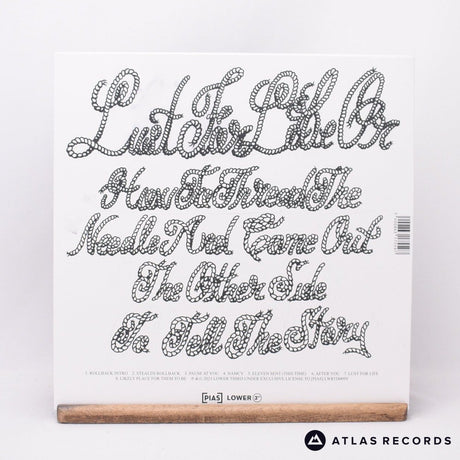 Lust For Life Or
How To Thread The
Needle And Come Out
The Other Side
To Tell The Story
1. ROLLBACK INTRO 2. STEALIN ROLLBACK 3. PAUSE AT YOU 4. NANCY 5. ELEVEN MINT (THIS TIME) 6. AFTER YOU 7. LUST FOR LIFE
8. LIKELY PLACE FOR THEM TO BE ℗ & © 2023 LOWER THIRD UNDER EXCLUSIVE LICENSE TO [PIAS]
[PIAS] LOWER 3RD
ATLAS RECORDS